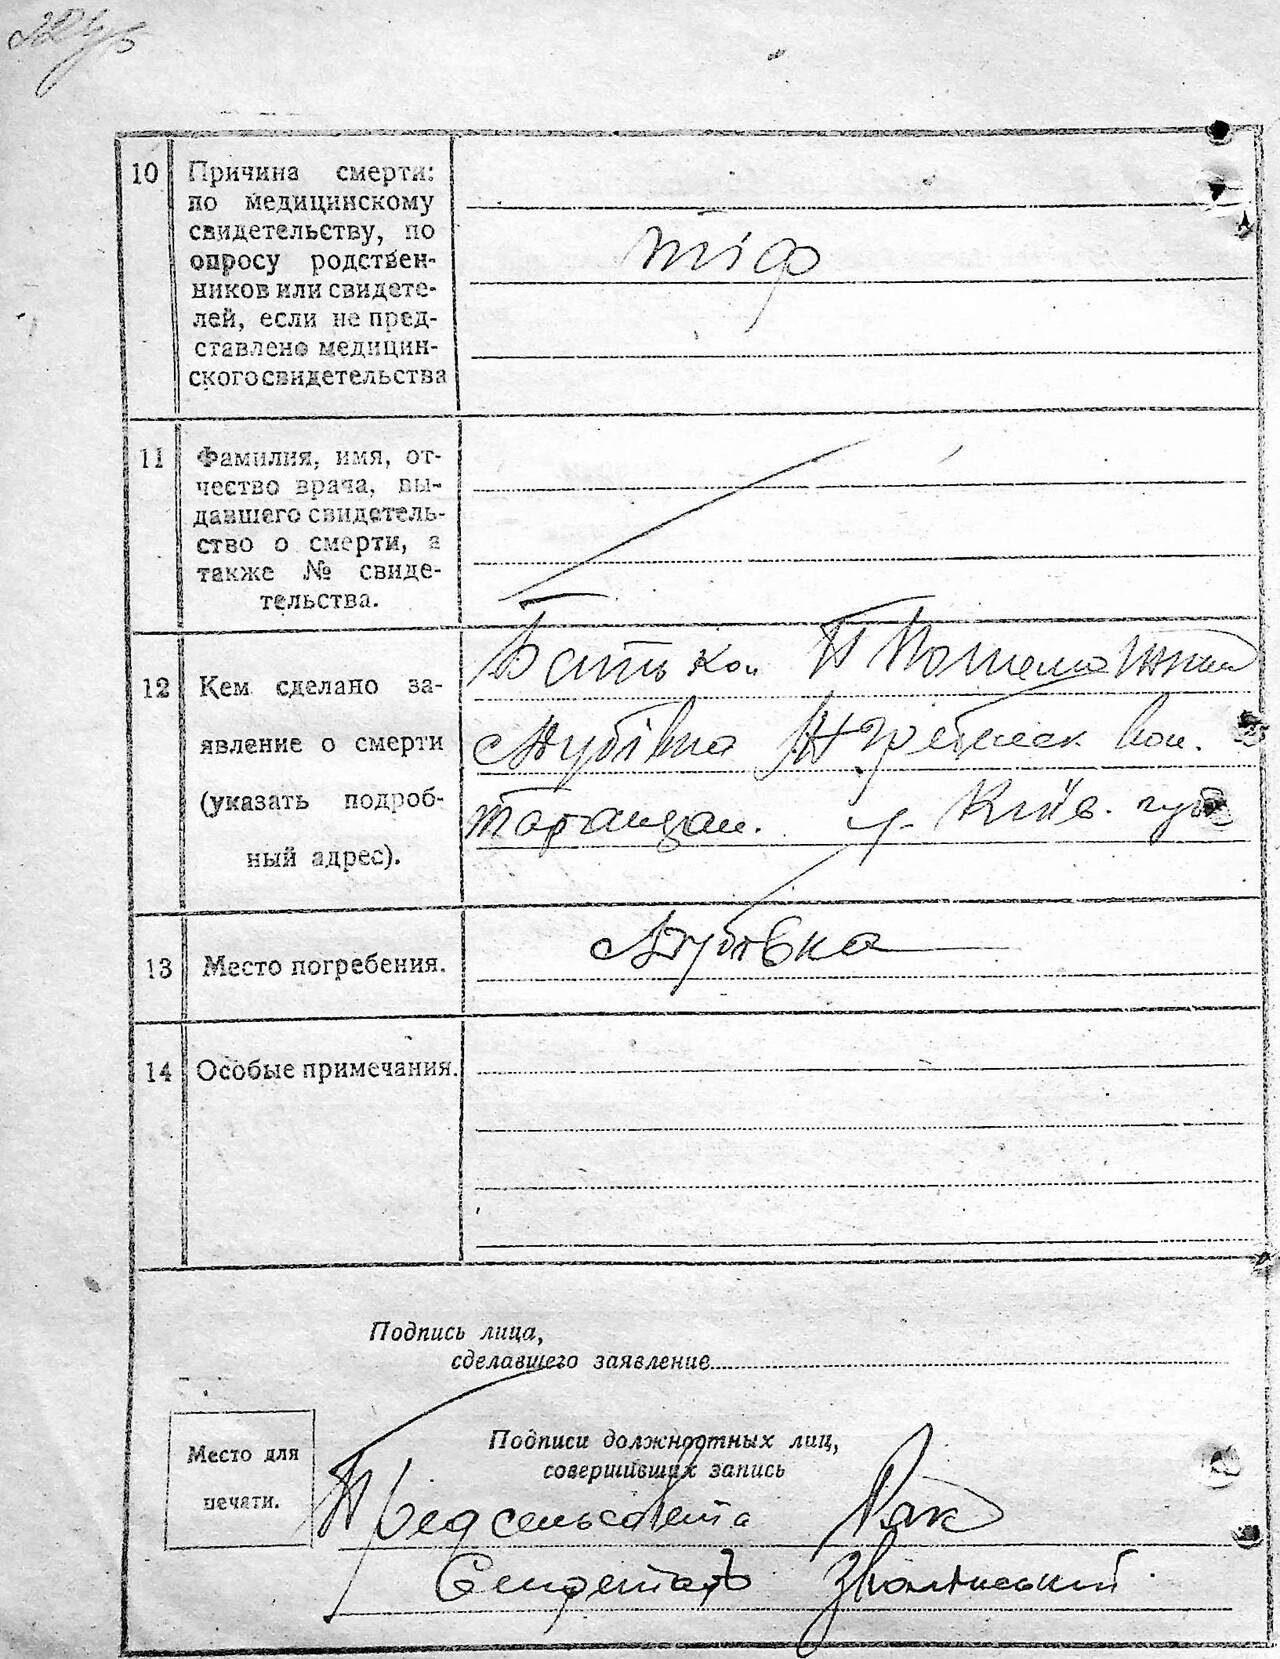 10
Причина смерти:
по медицинскому
свидетельству, по
опросу родствен-
ников или свидете-
лей, если не пред-
ставлено медицин-
ского свидетельства
тіф
11
Фамилия, имя, от-
чество врача, вы-
давшего свидетель-
ство о смерти, а
также № свиде-
тельства.
12
Кем сделано за-
явление о смерти
(указать подроб-
ный адрес).
Батьком П
Лубівка вол.
Таращан. у. Київ. губ
13
Место погребения.
Лубівка
14
Особые примечания.
Подпись лица,
сделавшего заявление
Место для
печати.
Подписи должностных лиц,
совершивших запись
Предсельсовета Рак
Секретарь